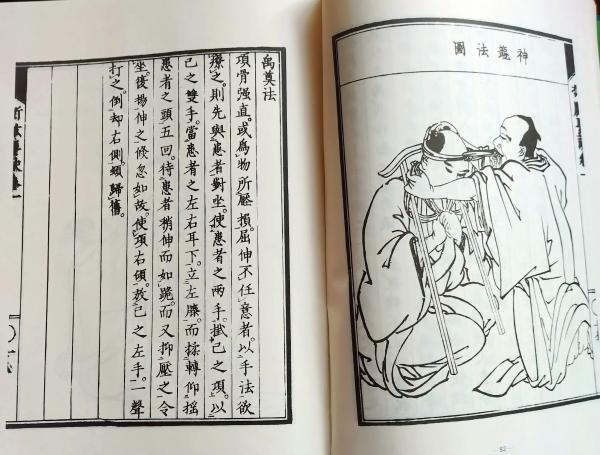 禹奠法
項骨强直。或爲物所壓損。屈伸不任意者。以手法欲
療之。則先與患者對坐。使患者之兩手。掛己之項。以
己之雙手。當患者之左右耳下。立左膝。而揉轉仰搖
患者之頭五回。待患者稍伸而如跪。而又抑壓之令
坐。後揚伸之。倏忽如故。使項右傾。放己之左手。一聲
打之。倒却右側。頸歸舊。
神法圖
82